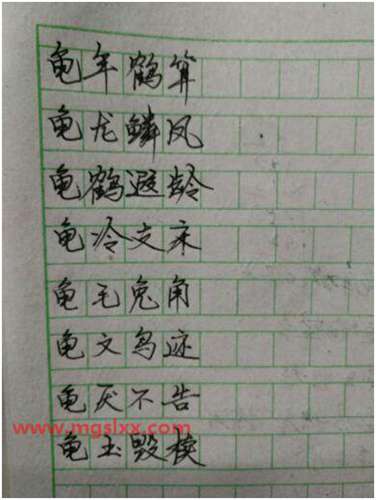 龟年鹤算
龟龙鳞凤
龟鹤遐龄
龟冷支床
龟毛兔角
龟文鸟迹
龟厌不告
www.mgslxx.com
龟玉毁椟